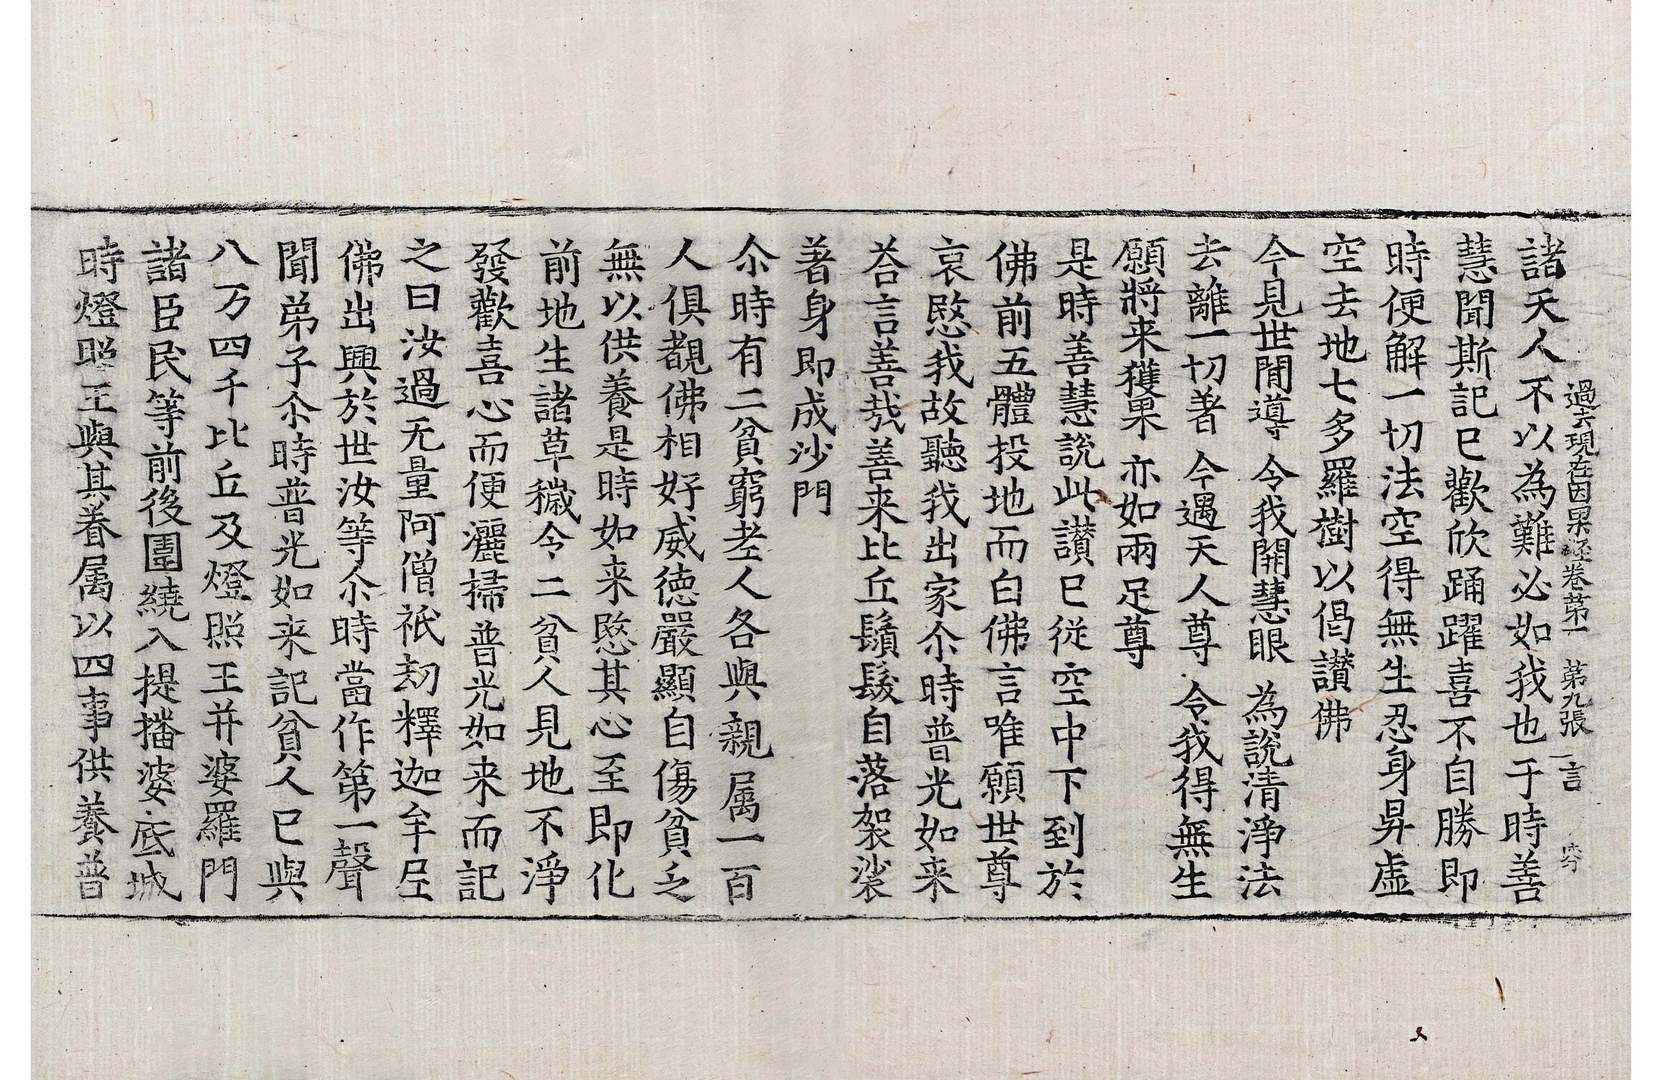 過去現在因果經卷第一 第九張 言
諸天人不以為難必如我也于時善
慧聞斯記已歡欣踊躍喜不自勝即
時便解一切法空得無生忍身昇虛
空去地七多羅樹以偈讃佛
今見世閒導 令我開慧眼 為說清淨法
去離一切著 今遇天人尊 令我得無生
願將来獲果 亦如兩足尊
是時善慧說此讃已從空中下到於
佛前五體投地而白佛言唯願世尊
哀愍我故聽我出家尒時普光如来
荅言善哉善来比丘鬚髮自落袈裟
著身即成沙門
尒時有二貧窮老人各與親属一百
人俱覩佛相好威德嚴顯自傷貧乏
無以供養是時如来愍其心至即化
前地生諸草穢令二貧人見地不淨
發歡喜心而便灑掃普光如来而記
之曰汝過无量阿僧祇劫釋迦牟尼
佛出興於世汝等尒時當作第一聲
聞弟子尒時普光如来記貧人已與
八万四千比丘及燈照王并婆羅門
諸臣民等前後圍繞入提播婆底城
時燈照王與其眷属以四事供養普